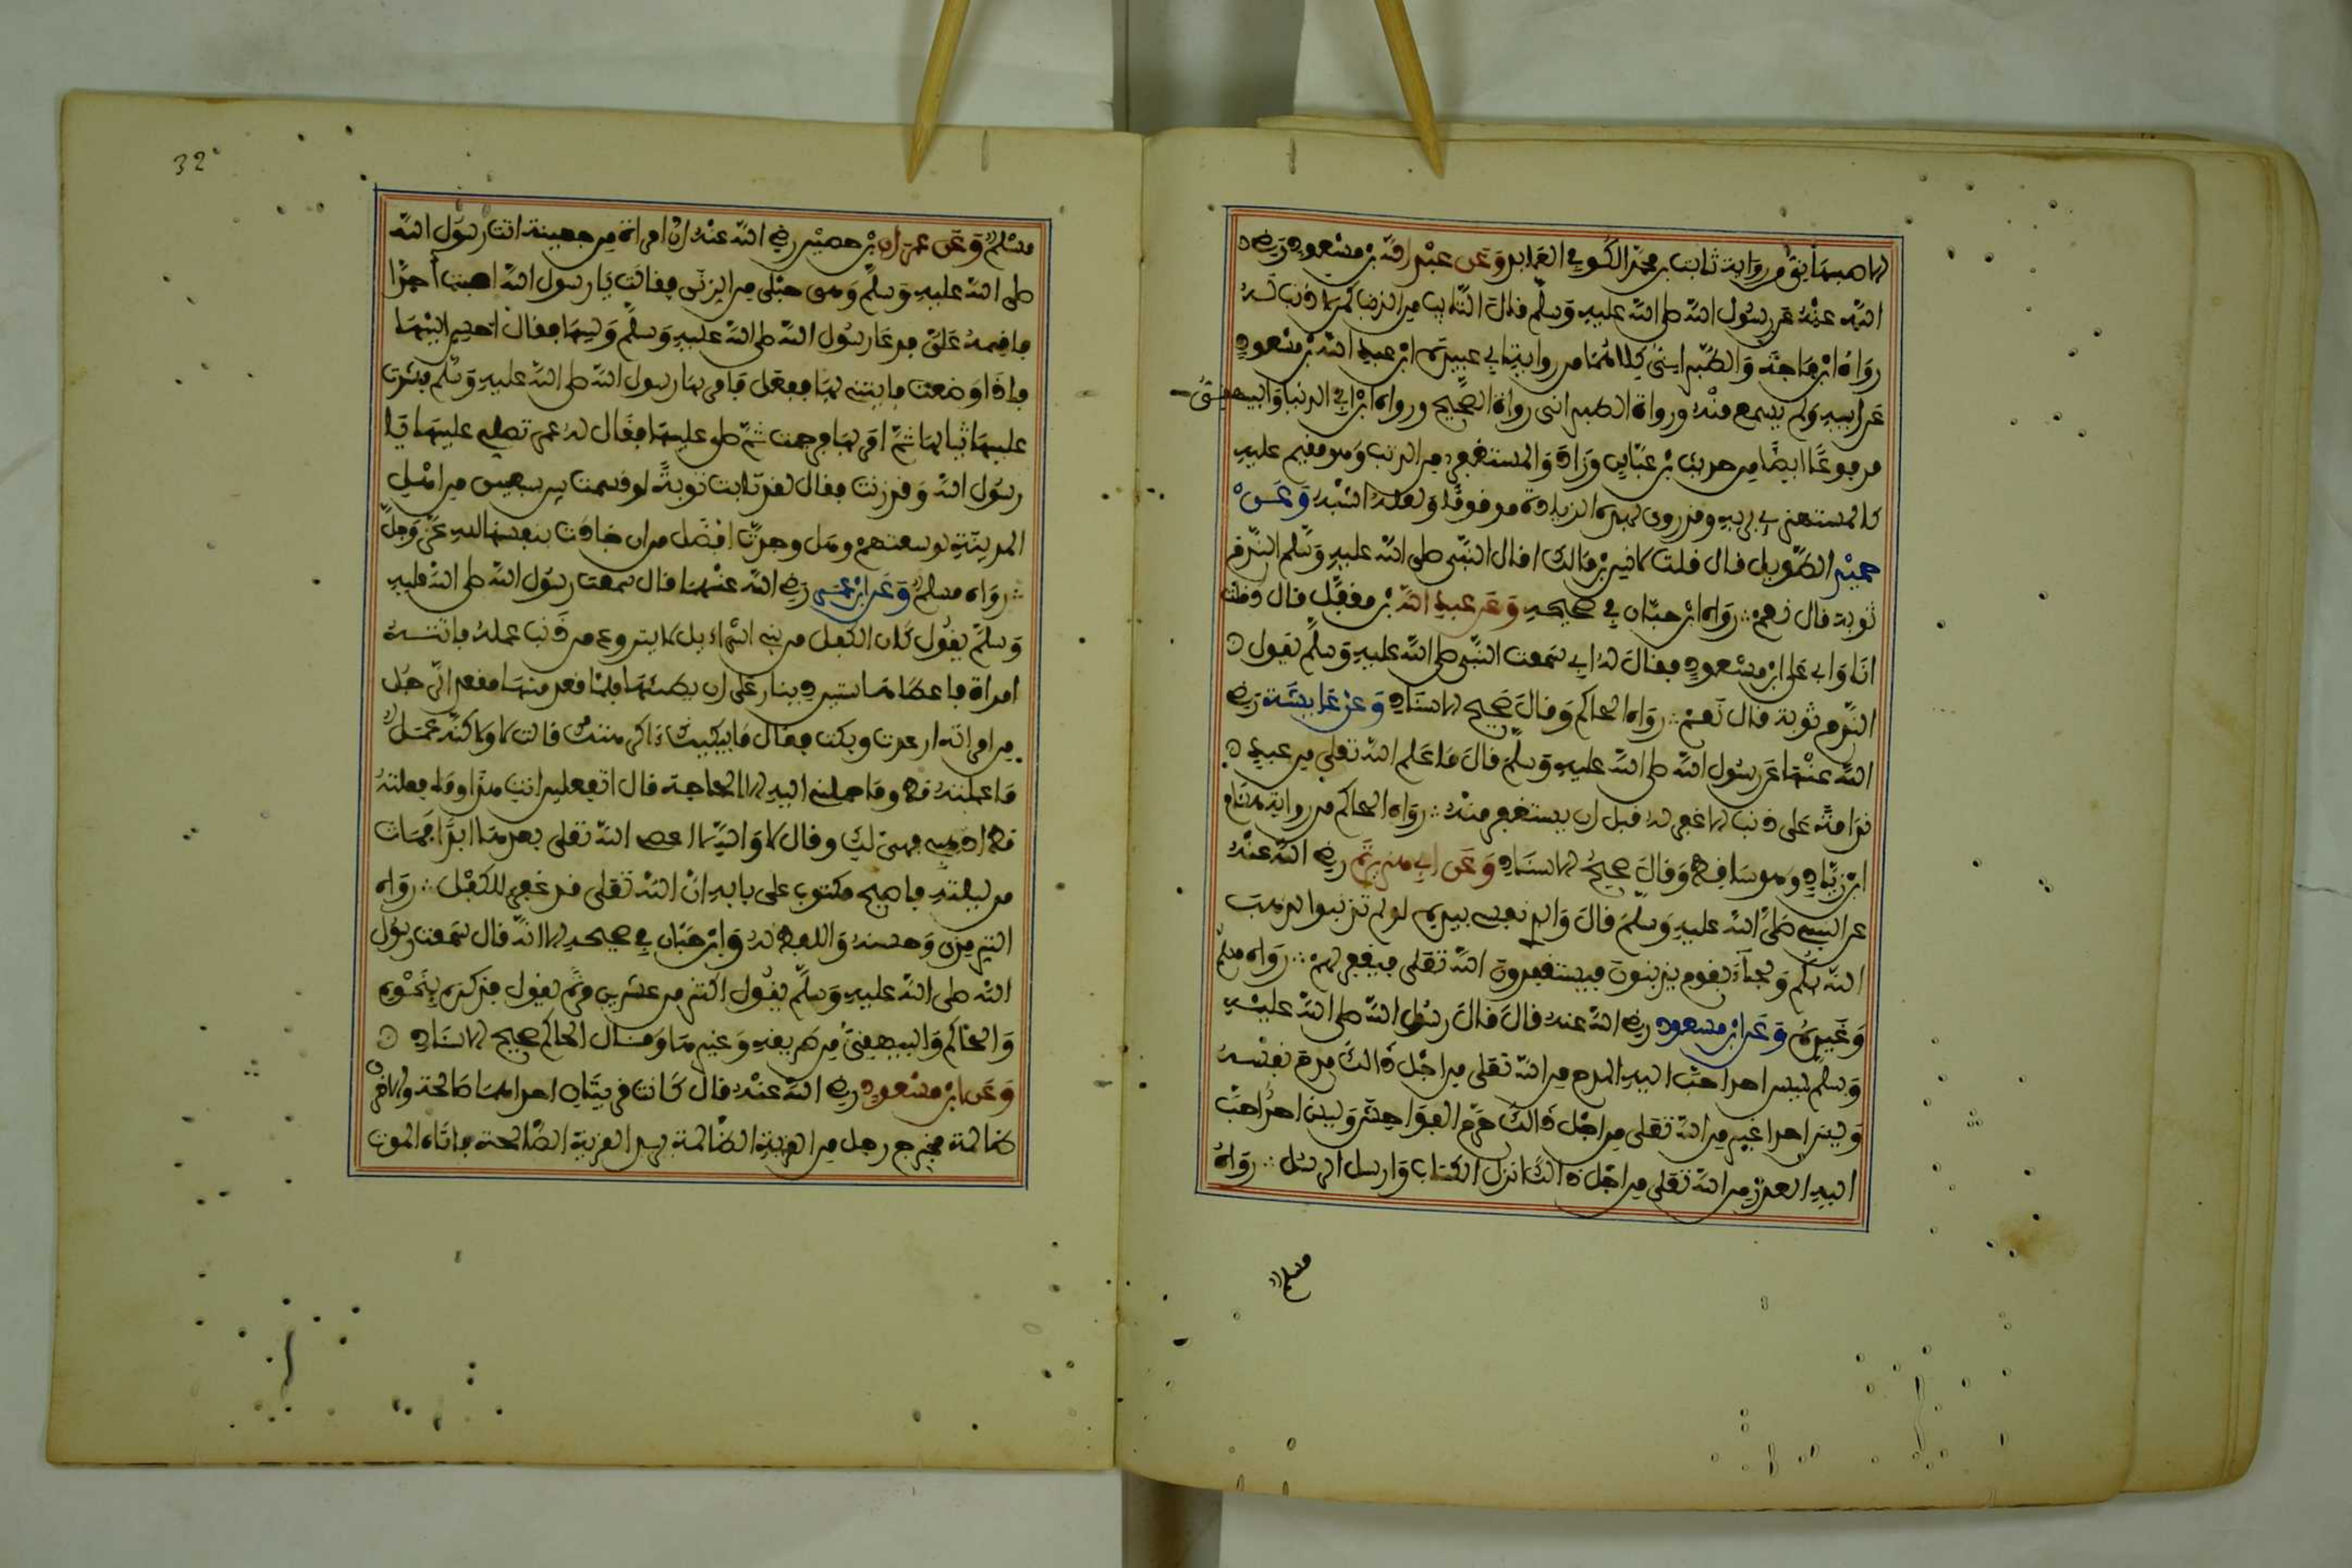 الاصبهانيّ من رواية ثابت بن محمّد الكوفي العابد وَعَن عبْد اللّه بْن مسْعود رَضي
اللّه عنْهُ عَن رسُول اللّه صلى اللّه عليهِ وَسلّم قالَ التّايب من الذنب كمن لا ذنب لهُ
رَوَاهُ ابْن مَاجَه وَالطّبرانيّ كِلاهُمَا من رواية ابي عبيدة ابن عبد اللّه بْن مسْعود
عَن ابيه ولم يسمع منْه ورواة الطبراني رواة الصّحيح ورواه ابْن ابي الدنيا وَالبيهقيّ
مرفوعًا ايضًا من حديث بْن عبّاس وزادَ وَالمستغفر من الذنب وَهو مقيم عليه
كالمستهزي بربه وقد روي بهذه الزيادة موقوفًا ولعله اشبه وَعَنْ
حميْد الطّويل قال قلت لانس بْن مالك اقال النّبي صلى اللّه عليه وَسلّم النّدم
توبة قال نعمْ ∴ رَوَاه ابْن حبّان في صحيحه وَعَن عبد اللّه بْن مغفّل قال دخلت
انَا وَابي عَلى ابْن مسْعود فقالَ لهُ ابي سَمعت النّبي صلى اللّه عليه وَسلّم يقول
النّدم توبة قال نَعمْ ∴ رَوَاه الحاكم وَقالَ صَحيح الاسنَاد وَعَنْ عَايشَة رَضي
اللّه عنْهَا عَن رسُول اللّه صلى اللّه عليهِ وَسلّم قالَ مَا عَلم اللّه تعلى من عبدٍ
نَدَامَةً عَلى ذنب الا غفر له قبل ان يستغفر منْه ∴ رَوَاه الحاكم من رواية هشام
ابْن زيَّاد وَهو سَاقط وَقالَ صحيحُ الاسنَاد وَعَن ابي هُريْرَة رضي اللّه عنْهُ
عن النبي صَلّى اللّه عليه وَسلّمَ قالَ وَالذي نفسي بيده لو لم تذنبوا لذهبَ
اللّه بكم وَلجآءَ بقوم يذنبونَ فيستغفرونَ اللّه تعلى فيغفر لهمْ ∴ رَوَاه مسلم
وَغَيرهُ وَعَن ابْن مسعود رضي اللّه عنه قالَ قالَ رسُول اللّه صلى اللّه عليْهِ
وَسلّم ليس احدا احبّ اليه المدح من اللّه تعلى من اجْل ذالك مدح نفْسهُ
وَليسَ احدا اغير من اللّه تعلى من اجْل ذالك حرّم الفوَاحشَ وَليسَ احدُ احبّ
اليه العذرُ من اللّه تعلى من اجْل ذالك انزل الكتاب وَارسل الرسُل ∴ رَوَاهُ
مسلم
32
مسْلم وَعَن عمرَان بْن حصيْن رضي اللّه عنه انّ امراة من جهينة اتت رسُول اللّه
صلى اللّه عليه وَسلّم وَهي حبْلى من الزنَى فقالت يَا رسول اللّه اصبت حَدًّا
فاقمهُ عَلَيّ فدعَا رسُول اللّه صلى اللّه عليهِ وَسلّم وَليهَا فقال احسن اليْهَا
فاذَا وَضعت فايتني بها ففعل فامر بهَا رسول اللّه صلى اللّه عليه وَسلّم فشدت
عليهَا ثيابهَا ثمّ امر بهَا فرجمت ثمّ صلى عليهَا فقال له عمر تصلي عليهَا يا
رسُول اللّه وَقد زنت فقال لقد تابت توبةً لو قسمت بين سبعين من اهْل
المدينةِ لوسعتهمْ وهل وجدتّ افضَل من ان جَادت بنفسهَا لله عَزّ وَجلّ
∴ رَوَاه مسلم وَعَن ابْن عمَر رَضي اللّه عنْهمَا قال سَمعت رسُول اللّه صلى اللّه عليهِ
وَسلّمَ يقُول كَان الكفل من بني اسْراءيل لا يتورع من ذَنب عمله فاتتهُ
امراة فاعطَاهَا ستين دينار عَلى ان يطئهَا فلمّا قعد منهَا مقعد الرّجُل
من امراته ارعدت وبكت فقال مَا يبكيك ذاكرهتك قالت لا ولاكنّه عمَل
مَا عملته قط وما حملني اليه الا الحاجة قال اتفعلين انت هذا وما فعلته
قط اذهبي فهي لك وقال لا وَاللّه لا اعصي اللّه تعلى بعدها ابدًا فمَات
من ليلتهِ فاصبح مكتوب على بابه انّ اللّه تعلى قد غفر للكفْل ∴ رَوَاه
الترمذي وَحسنه وَاللفظ له وَابْن حبّان في صحيحه الا انّه قال سَمعت رسُول
اللّه صلى اللّه عليهِ وَسلّم يقُول اكثر من عشرين مرّة يقول فذكره بنَحْوه
وَالحاكم وَالبيهقيّ من طريقه وَغيرهمَا وَقال الحاكم صحيح الاسنَاد
وَعَن ابْن مسْعود رضي اللّه عنْه قال كَانت قريتَان احداهمَا صَالحة والاخْرى
ظالمة فخرج رجل من القرية الظّالمة يريد القرية الصّالحة فاتَاه الموت